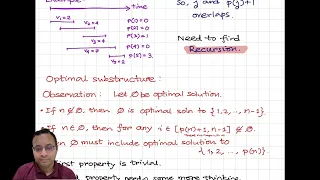 Example:
time
v₁ = 2
p(1) = 0
v₂ = 4
p(2) = 0
v₃ = 4
p(3) = 1
p(4) = 0
v₅ = 2
p(5) = 3.
So, j and p(j)+1
overlaps.
Need to find
Recursion.
Optimal substructure:
Observation: Let O be optimal solution.
• If n ∉ O, then O is optimal soln to {1, 2, .., n-1}.
• If n ∈ O, then for any i ∈ [p(n)+1, n-1] ∉ O.
then O must include optimal solution to
{1, 2, .., p(n)}.
first property is trivial.
property needs some more thinking.